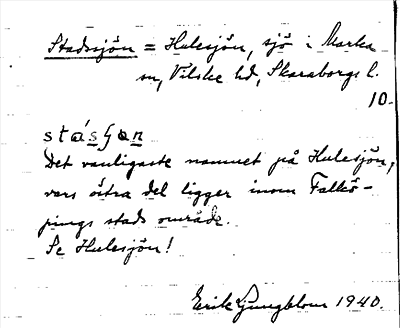 Stadssjön = Hulesjön, sjö i Marka
sn, Vilske hd, Skaraborgs l.
10.
stásʃøn
Det vanligaste namnet på Hulesjön,
vars östra del ligger inom Falkö-
pings stads område.
Se Hulesjön!
Erik Ljungblom 1940.